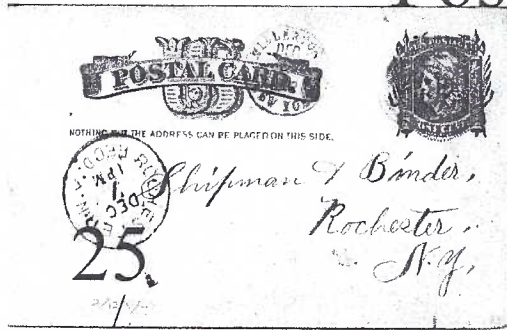 POSTAL CARD.
DEC
NOTHING BUT THE ADDRESS CAN BE PLACED ON THIS SIDE.
ROCHESTER, N.Y. REC'D.
DEC
7
1 PM
Chipman & Binder,
Rochester,
N.Y,
25.